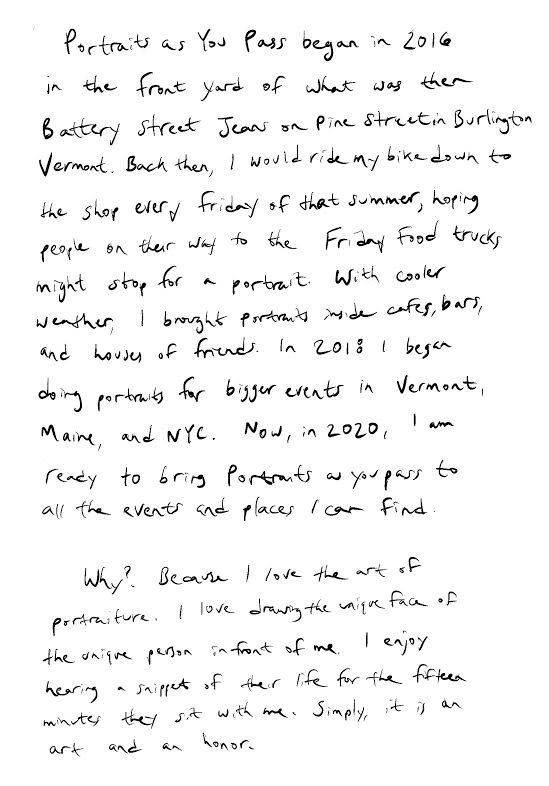 Portraits as You Pass began in 2016
in the front yard of what was then
Battery Street Jeans on Pine Street in Burlington
Vermont. Back then, I would ride my bike down to
the shop every friday of that summer, hoping
people on their way to the Friday Food trucks
might stop for a portrait. With cooler
weather, I brought portraits inside cafes, bars,
and houses of friends. In 2018 I began
doing portraits for bigger events in Vermont,
Maine, and NYC. Now, in 2020, I am
ready to bring Portraits as you pass to
all the events and places I can find.
Why? Because I love the art of
portraiture. I love drawing the unique face of
the unique person in front of me. I enjoy
hearing a snippet of their life for the fifteen
minutes they sit with me. Simply, it is an
art and an honor.